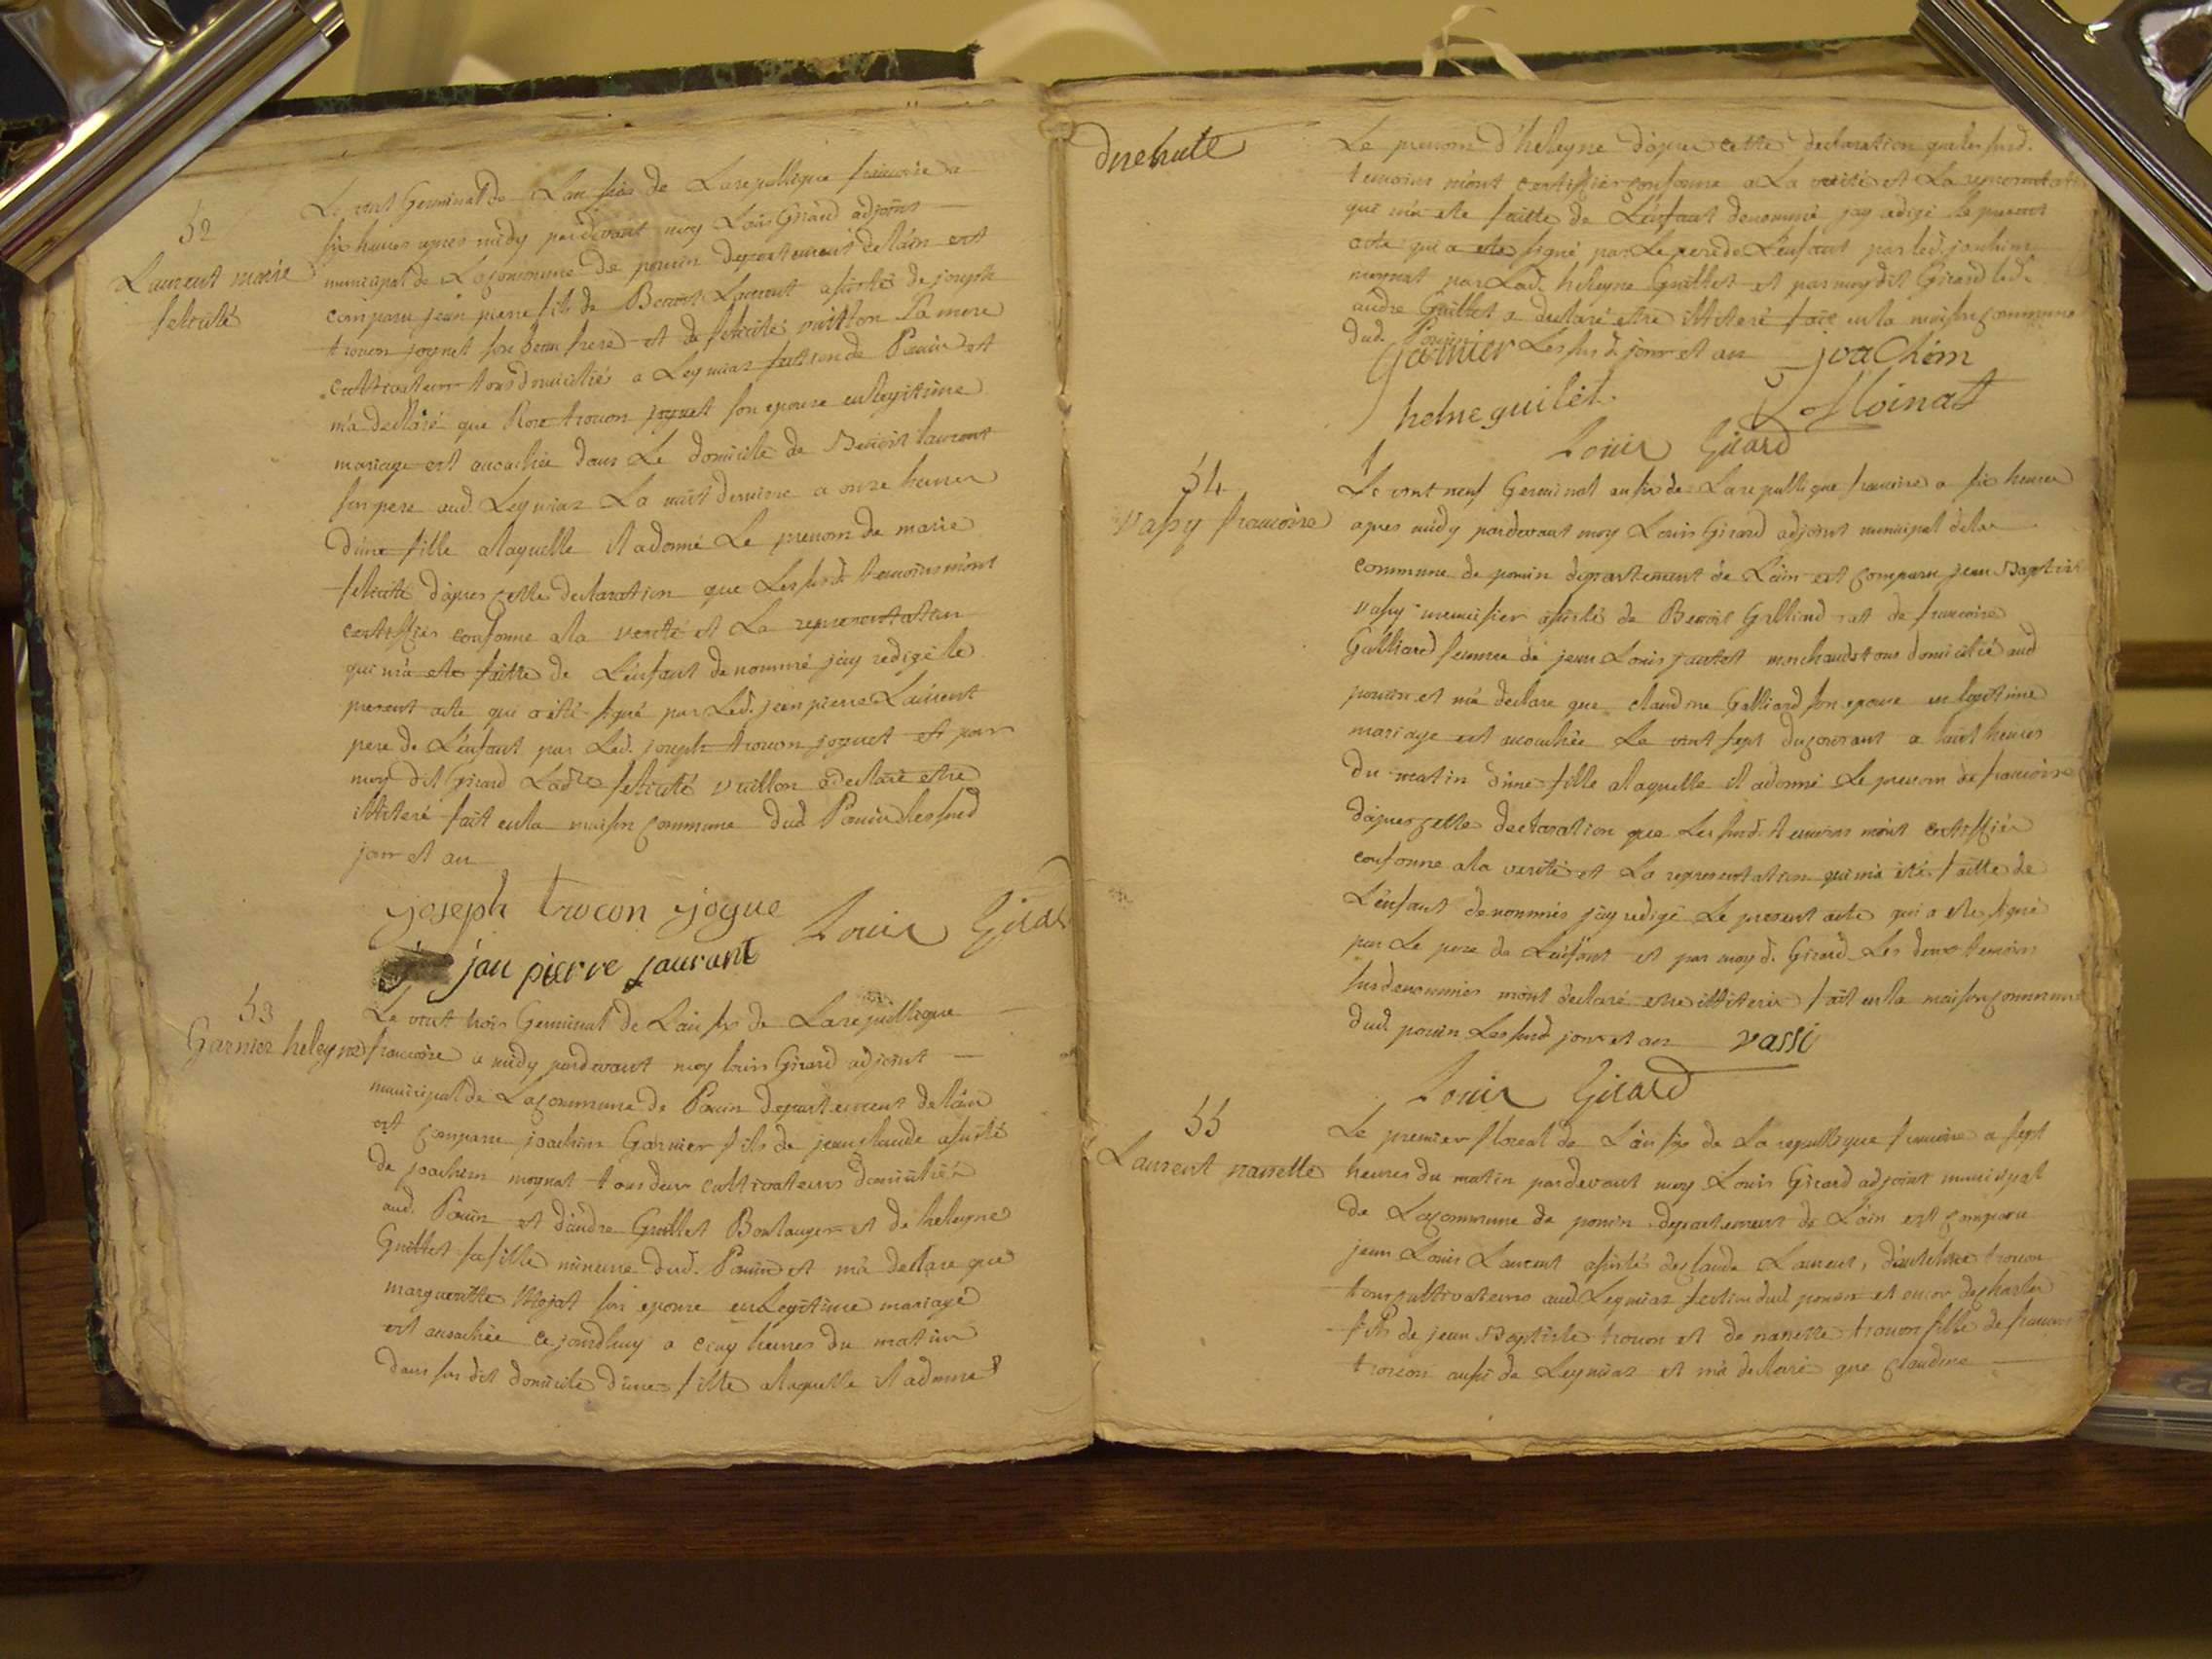 52
Laurent marie
felicité
Le vint Germinal de Lan six de La republique francoise a
six heures apres midy pardevant moy Louis Girard adjoint
municipal de La commune de poncin departement de lain est
comparu jean pierre fils de Benoist Laurent assisté de joseph
trocon joguet son beau frere et de felicité vuillon sa mere
cultivateurs tous domiciliés a Leymiaz section de Poncin est
m'a declaré que Rose trocon joguet son epouse en legitime
mariage est accouchée dans Le domicile de Benoist laurent
son pere aud. Leymiaz La nuit derniere a onze heures
d'une fille alaquelle il a donné Le prenom de marie
felicité d'apres cette declaration que Les susd. temoins m'ont
certiffiés conforme a la verité et La representation
qui m'a ete faitte de L'enfant denommé j'ay redigé le
present acte qui a été signé par Led. jean pierre Laurent
pere de L'enfant par Led. joseph trocon joguet et par
moy dit Girard Lad.te felicité vuillon a declaré etre
illiteré fait en la maison commune dud Poncin Les susd
jour et an
joseph trocon jogue Louis Girard
jan pierre laurant
53
Garnier heleyne
Le vint trois Germinal de L'an six de La republique
francoise a midy pardevant moy louis Girard adjoint
municipal de La commune de Poncin departement de l'ain
est comparu joachim Garnier fils de jean claude assisté
de joachim moynat tous deux cultivateurs domiciliés
aud. Poncin et d'andre Guillet Boulanger et de heleyne
Guillet sa fille mineure dud. Poncin et m'a declare que
margueritte Mojat son epouse en Legitime mariage
est accouchée ce jourdhuy a cinq heures du matin
dans son dit domicile d'une fille alaquelle il a donné
Le prenom d'heleyne d'apres cette declaration que les susd.
temoins m'ont certiffiés conforme a La verité et La representation
qui m'a ete faitte de L'enfant denommé jay redigé le present
acte qui a ete signé par Le pere de L'enfant par led. joachim
moynat par Lad. heleyne Guillet et par moy dit Girard led.
andre Guillet a declaré etre illiteré fait en la maison commune
dud. Poncin Les susd. jour et an
Garnier joachim
helne guilét. Moinat
Louis Girard
54
Vassy francoise
Le vint neuf Germinal an six de La republique francoise a six heures
apres midy pardevant moy Louis Girard adjoint municipal de la
commune de poncin departement de L'ain est comparu jean Baptiste
Vassy menuisier assisté de Benoit Galliard et de francoise
Galliard femme de jean Louis jantet marchands tous domicilié aud
poncin et m'a declare que claudine Galliard son epouse en legitime
mariage est accouchée Le vint sept du courant a huit heures
du matin d'une fille alaquelle il a donné Le prenom de francoise
d'apres cette declaration que Les susd. temoins m'ont certiffiés
conforme a la verité et La representation qui m'a été faitte de
L'enfant denommés j'ay redigé Le present acte qui a ete signé
par Le pere de L'enfant et par moy d. Girard Les deux temoins
susdenommés m'ont declaré etre illiterés fait en la maison commune
dud. poncin Les susd jour et an vassi
Louis Girard
55
Laurent nanette
Le premier floreal de L'an six de La republique francoise a sept
heures du matin pardevant moy Louis Girard adjoint municipal
de La commune de poncin departement de L'ain est comparu
jean Louis Laurent assisté de claude Laurent, d'antelme trocon
tous cultivateurs aud Leymiaz section dud. poncin et encor de charles
fils de jean Baptiste trocon et de nanette trocon fille de francois
trocon aussi de Leymiaz et m'a declaré que claudine